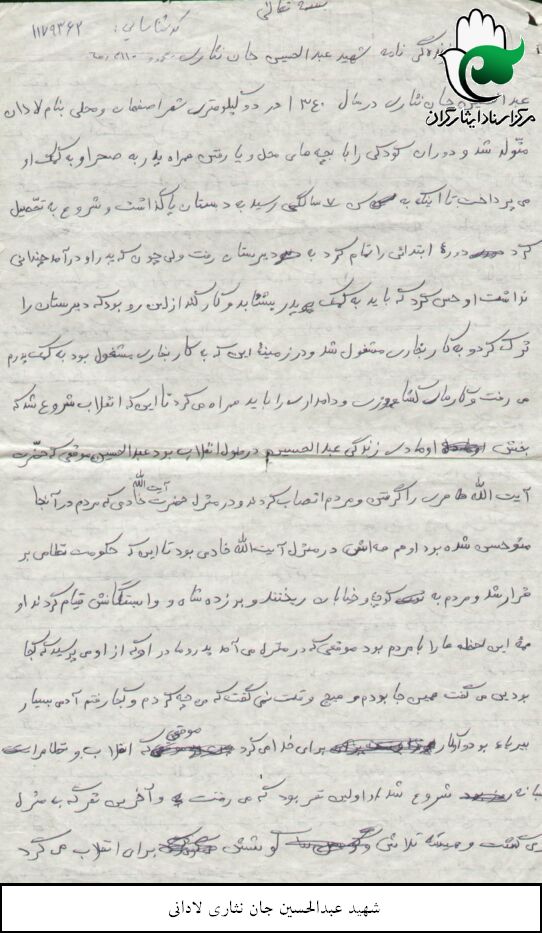 بسمه تعالی
کد شناسایی: ۱۱۷۹۳۶۲
زندگی نامه شهید عبدالحسین جان نثاری
مرکز اسناد ایثارگران
جان نثاری در سال ۱۳۴۰ در دو کیلومتری شهر اصفهان و محلی بنام لادان
متولد شد و دوران کودکی را با بچه های محل و یا رفتن همراه پدر به صحرا و به کمک او
می پرداخت تا اینکه به سن ۷ سالگی رسید به دبستان پا گذاشت و شروع به تحصیل
کرد دورهٔ ابتدائی را تمام کرد به دبیرستان رفت ولی چون که پدر او درآمد چندانی
نداشت او حس کرد که باید به کمک پدر بشتابد و کار کند از این رو بود که دبیرستان را
ترک کرد و به کار نجاری مشغول شد و در زمینهٔ این که به کار نجاری مشغول بود به کمک پدرم
می رفت و کارهای کشاورزی و دامداری را باید همراه می کرد تا این که انقلاب شروع شد که
بخش زندگی عبدالحسین در طول انقلاب بود عبدالحسین موقعی که حضرت
آیت الله طاهری را گرفتن و مردم اعتصاب کردند و در منزل حضرت آیت الله خادمی که مردم در آنجا
متحصن شده بود او هم همه اش در منزل آیت الله خادمی بود تا این که حکومت نظامی بر
قرار شد و مردم به کوچه و خیابان ریختند و بر ضد شاه و وابستگانش قیام کردند او
همهٔ این لحظه ها را با مردم بود موقعی که در منزل می آمد پدر و مادر او که از او می پرسید که کجا
بودین می گفت همین جا بودم و هیچ وقت نمی گفت که من چه کردم و کجا رفتم آدمی بسیار
بی ریاء بود و کارها برای خدا می کرد موقعی که انقلاب و تظاهرات
شروع شد او اولین نفر بود که می رفت و آخرین نفر که به منزل
می گشت و همیشه تلاش و کوشش برای انقلاب می کرد
شهید عبدالحسین جان نثاری لادانی